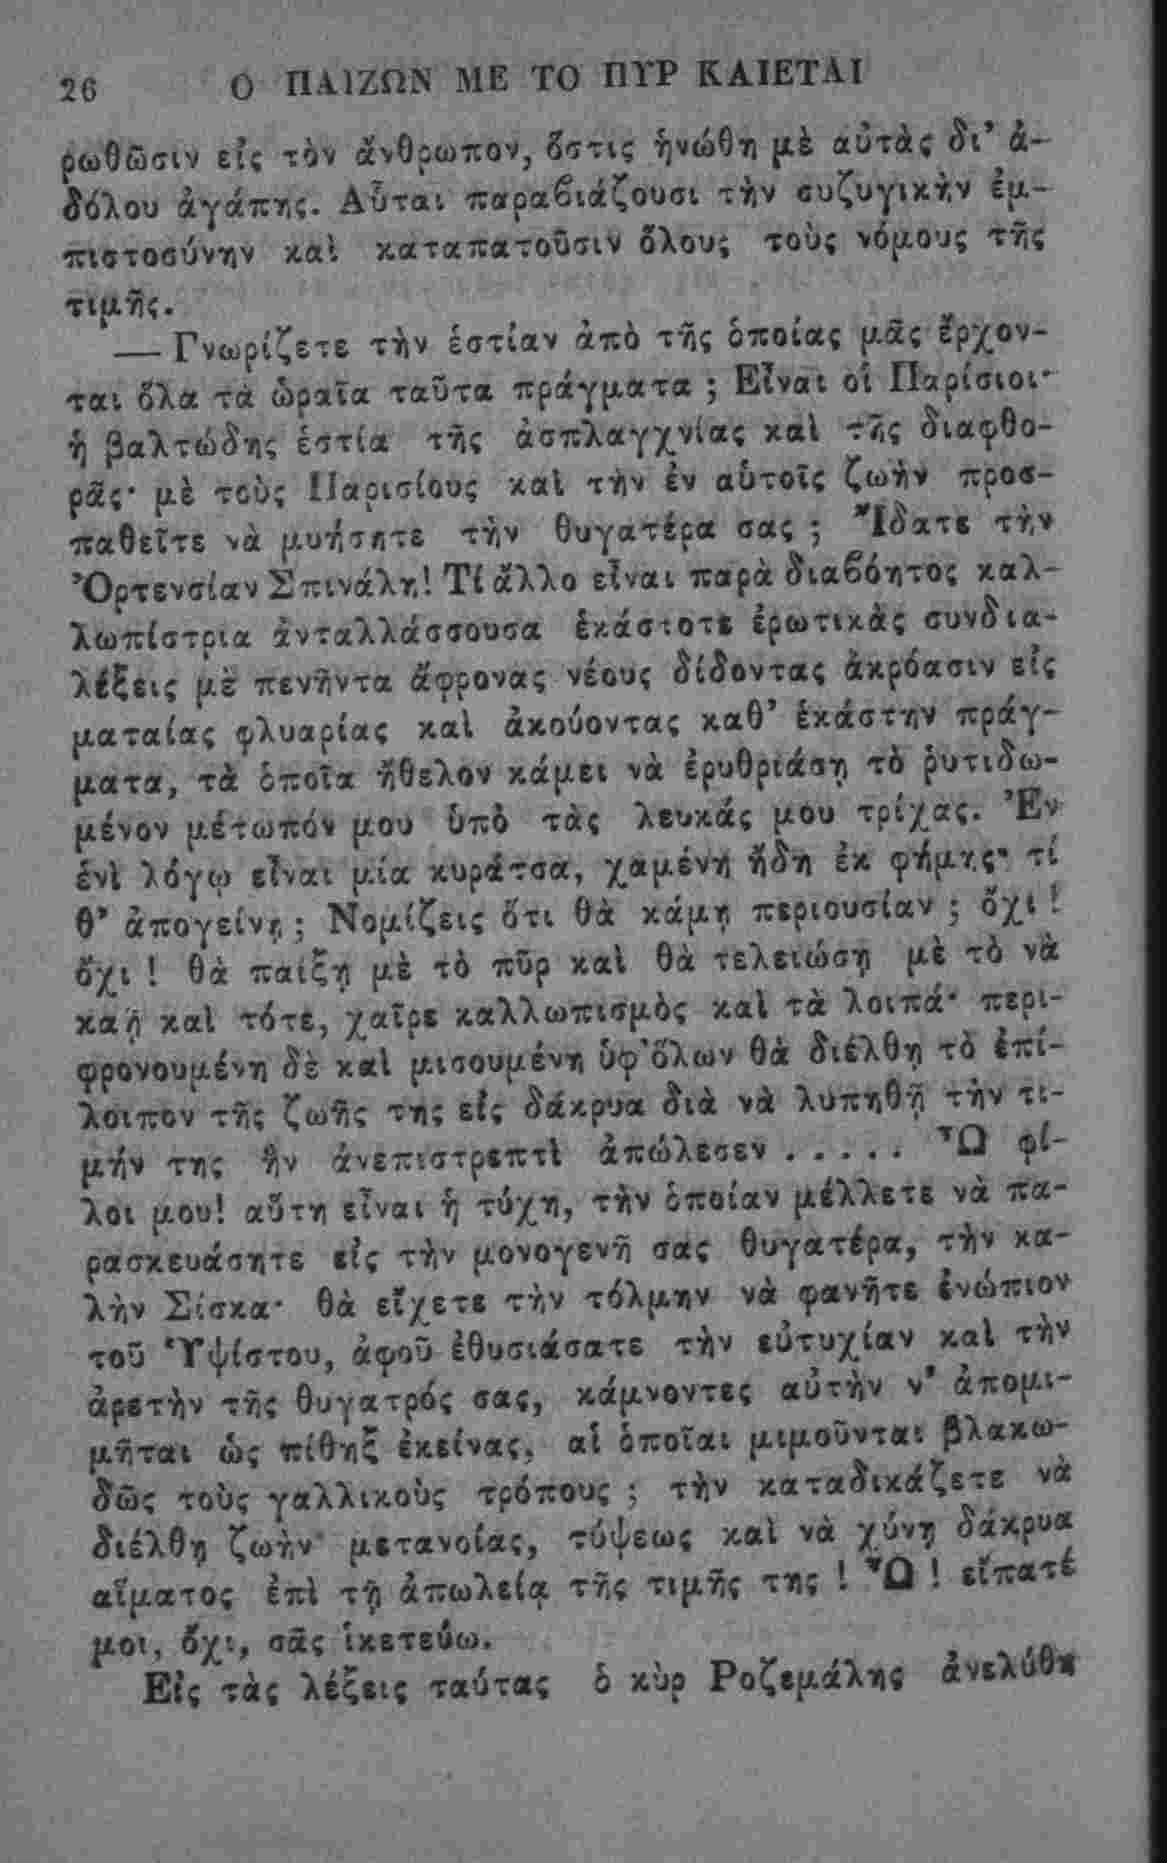 26 Ο ΠΑΙΖΩΝ ΜΕ ΤΟ ΠΥΡ ΚΑΙΕΤΑΙ
ρωθῶσιν εἰς τὸν ἄνθρωπον, ὅστις ἡνώθη μὲ αὐτὰς δι’ ἀ-
δόλου ἀγάπης. Αὗται παραβιάζουσι τὴν συζυγικὴν ἐμ-
πιστοσύνην καὶ καταπατοῦσιν ὅλους τοὺς νόμους τῆς
τιμῆς.
— Γνωρίζετε τὴν ἑστίαν ἀπὸ τῆς ὁποίας μᾶς ἔρχον-
ται ὅλα τὰ ὡραῖα ταῦτα πράγματα ; Εἶναι οἱ Παρίσιοι·
ἡ βαλτώδης ἑστία τῆς ἀσπλαγχνίας καὶ τῆς διαφθο-
ρᾶς· μὲ τοὺς Παρισίους καὶ τὴν ἐν αὐτοῖς ζωὴν προσ-
παθεῖτε νὰ μυήσητε τὴν θυγατέρα σας ; Ἴδατε τὴν
Ὀρτενσίαν Σπινάλη! Τί ἄλλο εἶναι παρὰ διαβόητος καλ-
λωπίστρια ἀνταλλάσσουσα ἑκάστοτε ἐρωτικὰς συνδια-
λέξεις μὲ πενῆντα ἄφρονας νέους δίδοντας ἀκρόασιν εἰς
ματαίας φλυαρίας καὶ ἀκούοντας καθ’ ἑκάστην πράγ-
ματα, τὰ ὁποῖα ἤθελον κάμει νὰ ἐρυθριάσῃ τὸ ῥυτιδω-
μένον μέτωπόν μου ὑπὸ τὰς λευκάς μου τρίχας. Ἐν
ἑνὶ λόγῳ εἶναι μία κυράτσα, χαμένη ἤδη ἐκ φήμης· τί
θ’ ἀπογείνῃ ; Νομίζεις ὅτι θὰ κάμῃ περιουσίαν ; ὄχι !
ὄχι ! θὰ παίξῃ μὲ τὸ πῦρ καὶ θὰ τελειώσῃ μὲ τὸ νὰ
καῇ καὶ τότε, χαῖρε καλλωπισμὸς καὶ τὰ λοιπά· περι-
φρονουμένη δὲ καὶ μισουμένη ὑφ’ὅλων θὰ διέλθῃ τὸ ἐπί-
λοιπον τῆς ζωῆς της εἰς δάκρυα διὰ νὰ λυπηθῇ τὴν τι-
μήν της ἣν ἀνεπιστρεπτὶ ἀπώλεσεν ..... Ὦ φί-
λοι μου! αὕτη εἶναι ἡ τύχη, τὴν ὁποίαν μέλλετε νὰ πα-
ρασκευάσητε εἰς τὴν μονογενῆ σας θυγατέρα, τὴν κα-
λὴν Σίσκα· θὰ εἴχετε τὴν τόλμην νὰ φανῆτε ἐνώπιον
τοῦ Ὑψίστου, ἀφοῦ ἐθυσιάσατε τὴν εὐτυχίαν καὶ τὴν
ἀρετὴν τῆς θυγατρός σας, κάμνοντες αὐτὴν ν’ ἀπομι-
μῆται ὡς πίθηξ ἐκείνας, αἱ ὁποῖαι μιμοῦνται βλακω-
δῶς τοὺς γαλλικοὺς τρόπους ; τὴν καταδικάζετε νὰ
διέλθῃ ζωὴν μετανοίας, τύψεως καὶ νὰ χύνῃ δάκρυα
αἵματος ἐπὶ τῇ ἀπωλείᾳ τῆς τιμῆς της ! Ὦ ! εἴπατέ
μοι, ὄχι, σᾶς ἱκετεύω.
Εἰς τὰς λέξεις ταύτας ὁ κὺρ Ροζεμάλης ἀνελύθη